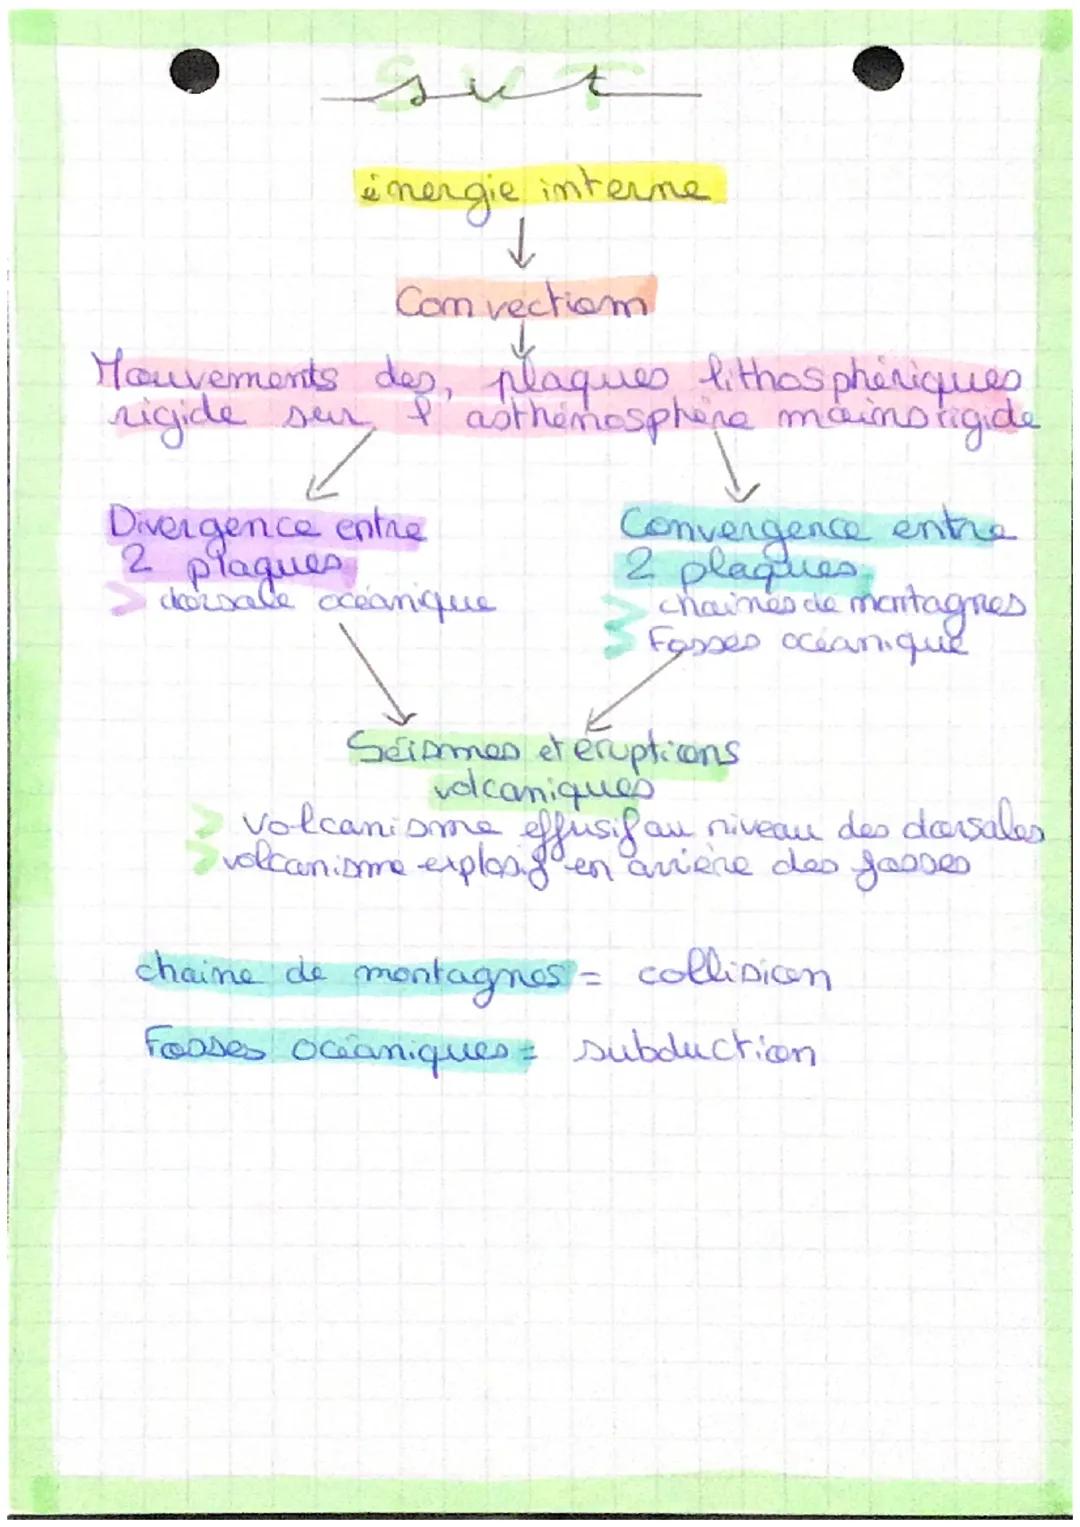 svt
énergie interne
Convection
Mouvements des plaques lithosphériques
rigide sur l'asthénosphère moins rigide
Divergence entre
2 plaques
> dorsale océanique
Convergence entre
2 plaques
> chaines de montagnes
> Fosses océanique
Séismes et éruptions
volcaniques
> volcanisme effusif au niveau des dorsales
> volcanisme explosif en arrière des fosses
chaine de montagnes = collision
Fosses océaniques = subduction